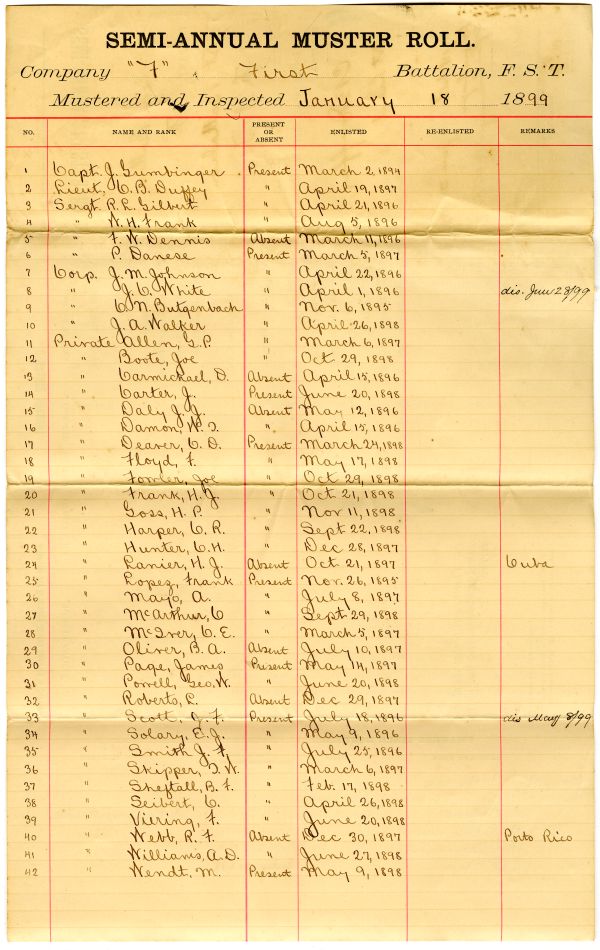 SEMI-ANNUAL MUSTER ROLL.
Company "F" First Battalion, F. S. T.
Mustered and Inspected January 18 1899
NO. NAME AND RANK PRESENT OR ABSENT ENLISTED RE-ENLISTED REMARKS
1 Capt. J. Gumbinger Present March 2, 1894
2 Lieut. C. B. Duffey " April 19, 1897
3 Sergt. R. L. Gilbert " April 21, 1896
4 " W. H. Frank " Aug 5, 1896
5 " F. W. Dennis Absent March 11, 1896
6 " P. Danese Present March 5, 1897
7 Corp. J. M. Johnson " April 22, 1896
8 " J. C. White " April 1, 1896 dis. 28/99
9 " C. N. Butgenbach " Nov. 6, 1895
10 " J. A. Walker " April 26, 1898
11 Private Allen, G. P. " March 6, 1897
12 " Boote, Joe " Oct 29, 1898
13 " Carmichael, D. Absent April 15, 1896
14 " Carter, J. Present June 20, 1898
15 " Daly J. J. Absent May 12, 1896
16 " Damon, W. I. " April 15, 1896
17 " Deaver, C. D. Present March 24, 1898
18 " Floyd, F. " May 17, 1898
19 " Fowler, Joe " Oct 29, 1898
20 " Frank, H. J. " Oct 21, 1898
21 " Goss, H. P. " Nov 11, 1898
22 " Harper, C. R. " Sept 22, 1898
23 " Hunter, C. H. " Dec 28, 1897
24 " Lanier, H. J. Absent Oct 21, 1897 Cuba
25 " Lopez, Frank Present Nov. 26, 1895
26 " Mayo, A. " July 8, 1897
27 " McArthur, C " Sept 29, 1898
28 " McIver, C. E. " March 5, 1897
29 " Oliver, B. A. Absent July 10, 1897
30 " Page, James Present May 14, 1897
31 " Powell, Geo. W. " June 20, 1898
32 " Roberts, L. Absent Dec 29, 1897
33 " Scott, J. F. Present July 18, 1896 dis May 8/99
34 " Solary, E. J. " May 9, 1896
35 " Smith J. F. " July 25, 1896
36 " Skipper, I. W. " March 6, 1897
37 " Sheftall, B. F. " Feb. 17, 1898
38 " Seibert, C. " April 26, 1898
39 " Viering, F. " June 20, 1898
40 " Webb, R. F. Absent Dec 30, 1897 Porto Rico
41 " Williams, A. D. " June 27, 1898
42 " Wendt, M. Present May 9, 1898